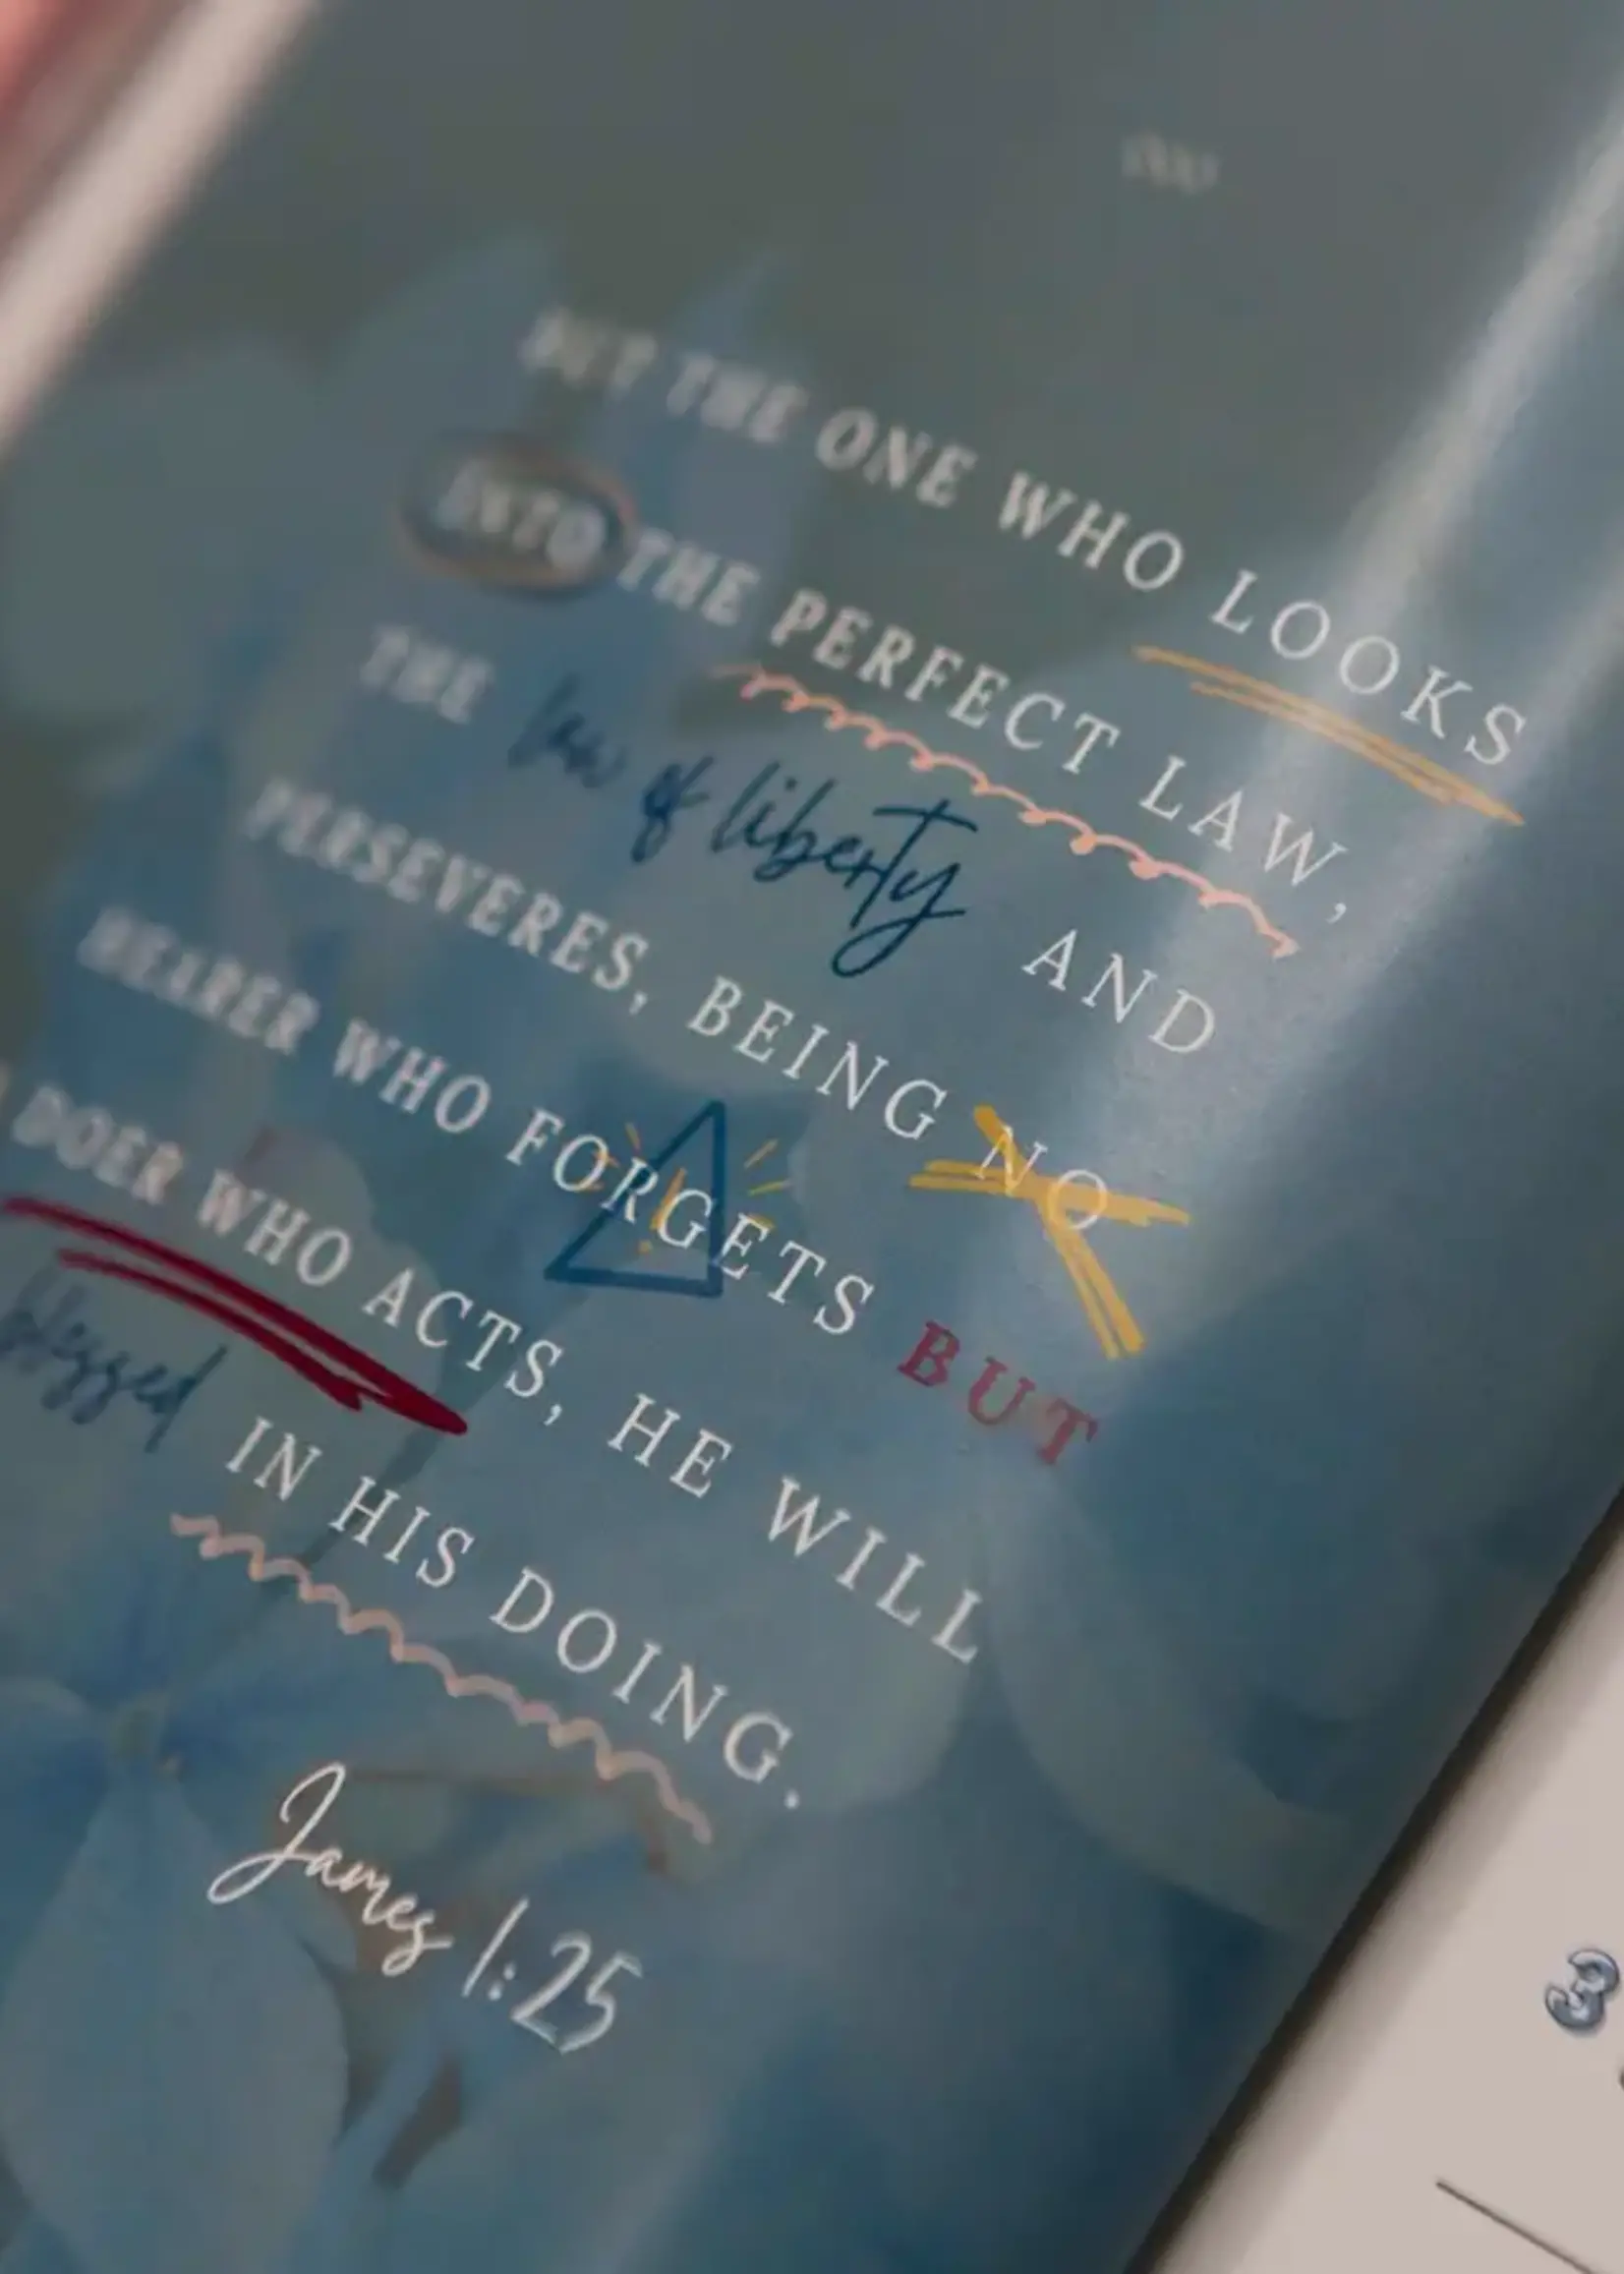 BUT THE ONE WHO LOOKS
INTO THE PERFECT LAW,
THE law of liberty AND
PERSEVERES, BEING NO
HEARER WHO FORGETS BUT
DOER WHO ACTS, HE WILL
blessed IN HIS DOING.
James 1:25
3